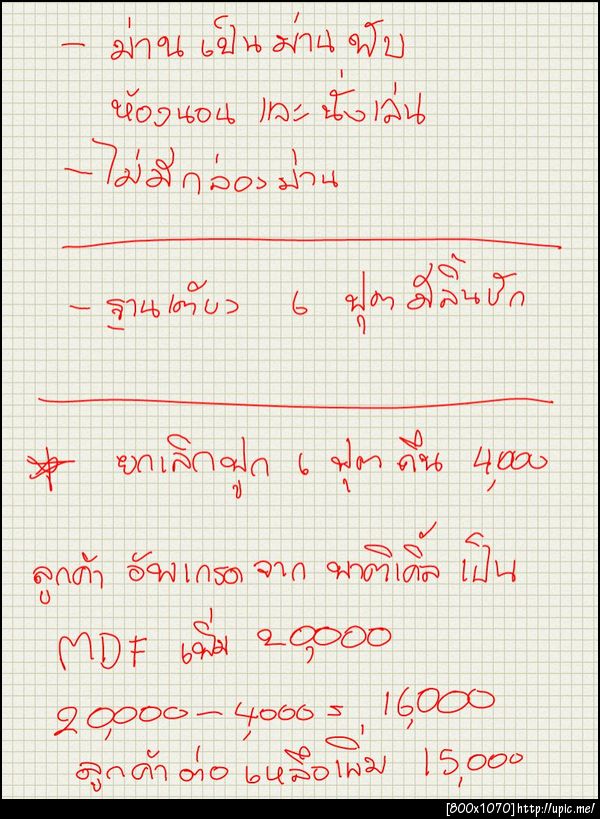 - ม่านเป็นม่านพับ
ห้องนอน และ นั่งเล่น
- ไม่มีกล่องม่าน
- ฐานเตียง 6 ฟุต มีลิ้นชัก
* ยกเลิกฟูก 6 ฟุต คืน 4,000
ลูกค้า อัพเกรด จาก พาติเคิ้ล เป็น
MDF เพิ่ม 20,000
20,000 - 4,000 = 16,000
ลูกค้าต่อ เหลือเพิ่ม 15,000
[800x1070]http://upic.me/